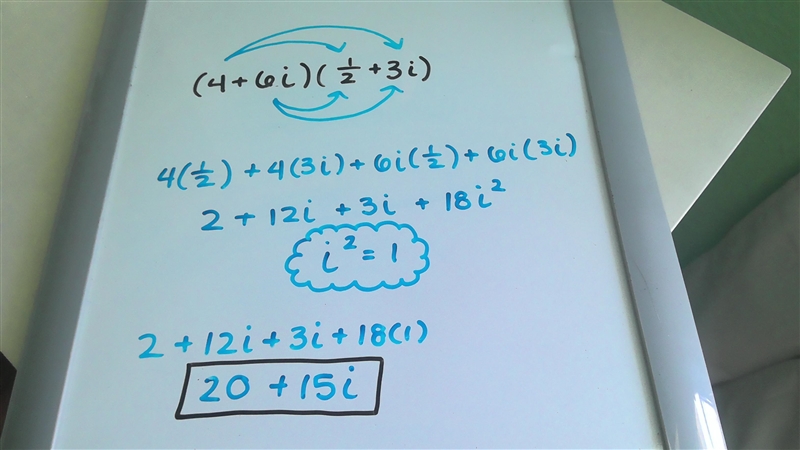 (4+6i)(½+3i)
4(½)+4(3i)+6i(½)+6i(3i)
2+12i+3i+18i²
i²=1
2+12i+3i+18(1)
20+15i